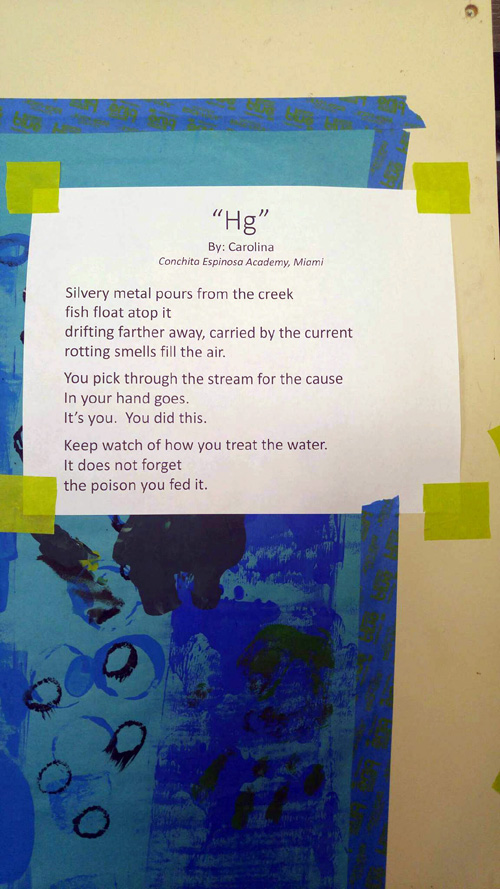 “Hg”
By: Carolina
Conchita Espinosa Academy, Miami
Silvery metal pours from the creek
fish float atop it
drifting farther away, carried by the current
rotting smells fill the air.
You pick through the stream for the cause
In your hand goes.
It’s you.  You did this.
Keep watch of how you treat the water.
It does not forget
the poison you fed it.